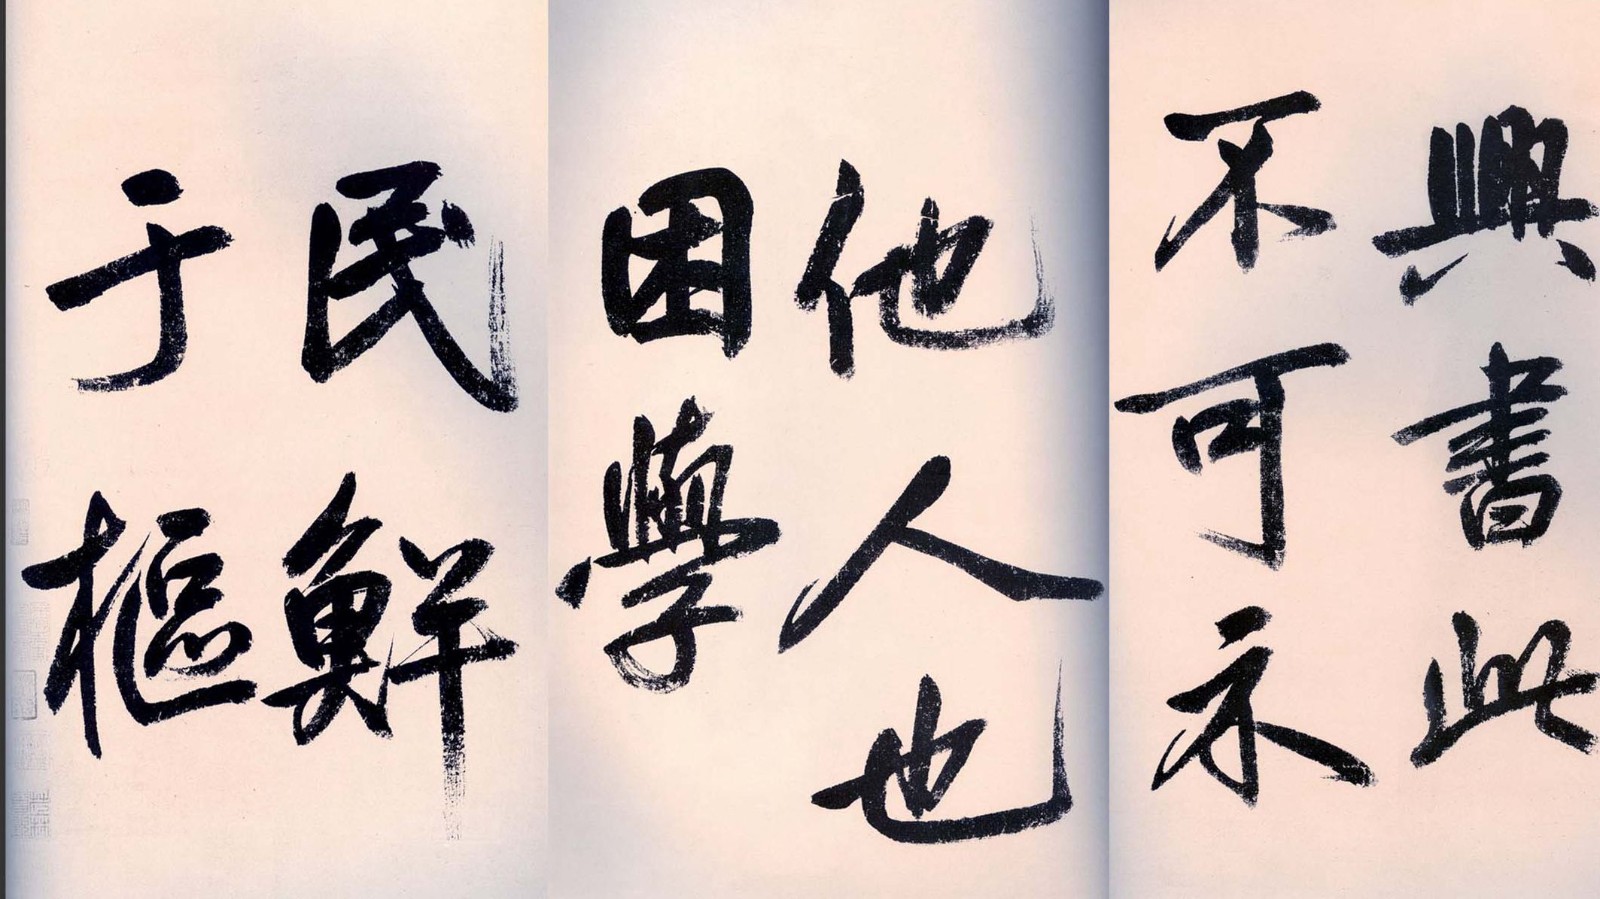 興書此
不可示
他人也
困學
民鮮
于樞